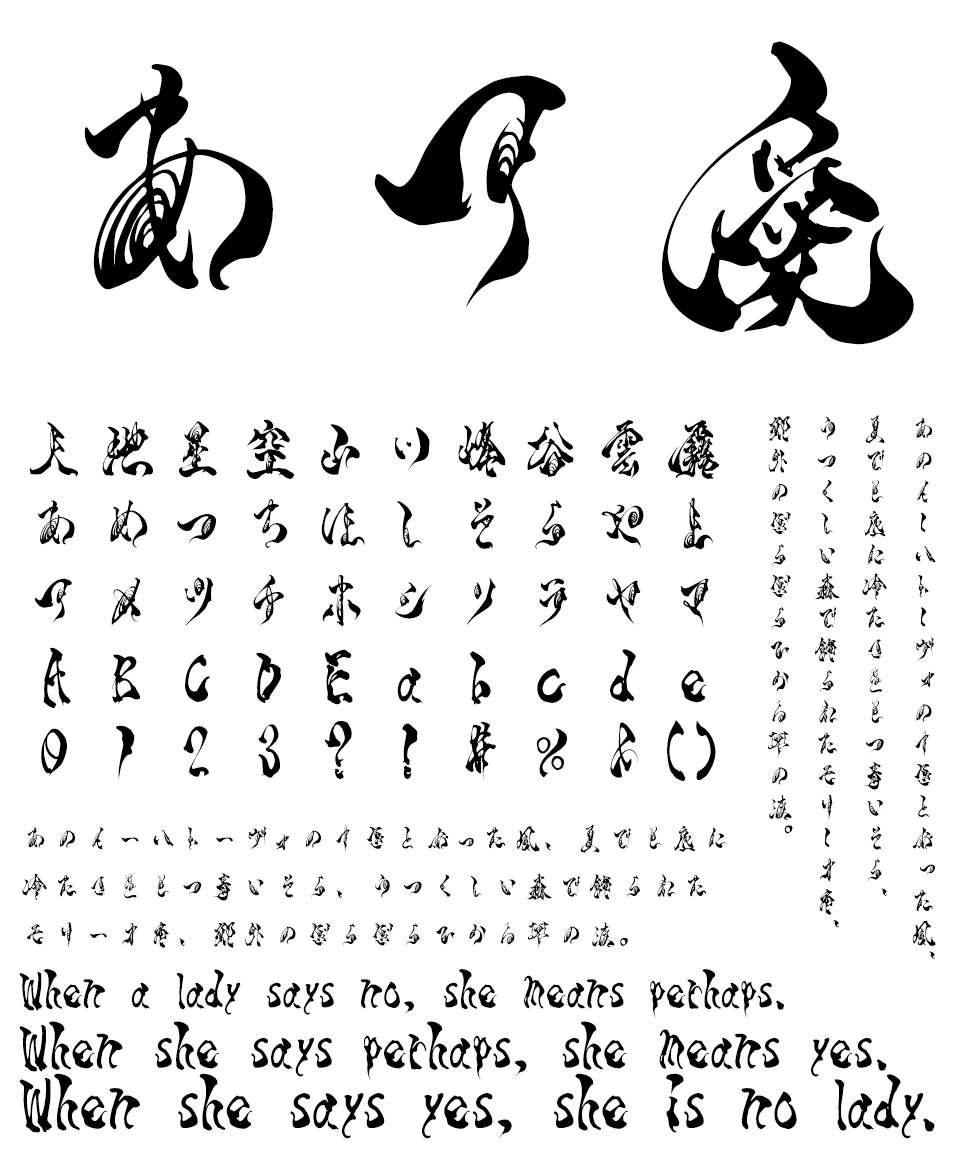 あア
天地星空山川峰谷雲霧
あめつちほしそらやま
アメツチホシソラヤマ
ABCDEabcde
0123?!#%&()
あのイーハトーヴォのすきとおった風、
夏でも底に冷たさをもつ青いそら、
うつくしい森で飾られたモリーオ市、
郊外のぎらぎらひかる草の波。
あのイーハトーヴォのすきとおった風、夏でも底に
冷たさをもつ青いそら、うつくしい森で飾られた
モリーオ市、郊外のぎらぎらひかる草の波。
When a lady says no, she means perhaps.
When she says perhaps, she means yes.
When she says yes, she is no lady.